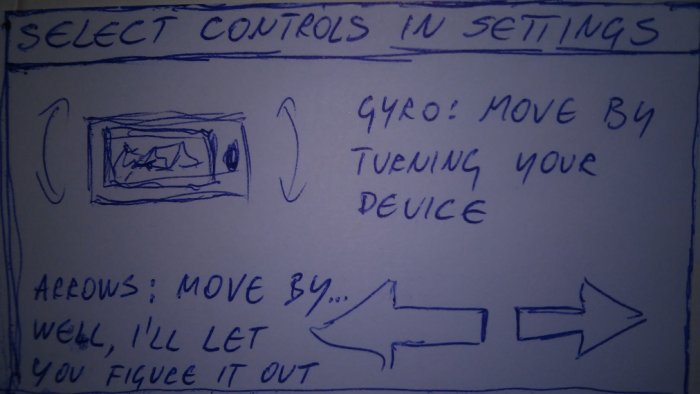 SELECT CONTROLS IN SETTINGS
GYRO: MOVE BY
TURNING YOUR
DEVICE
ARROWS: MOVE BY...
WELL, I'LL LET
YOU FIGURE IT OUT